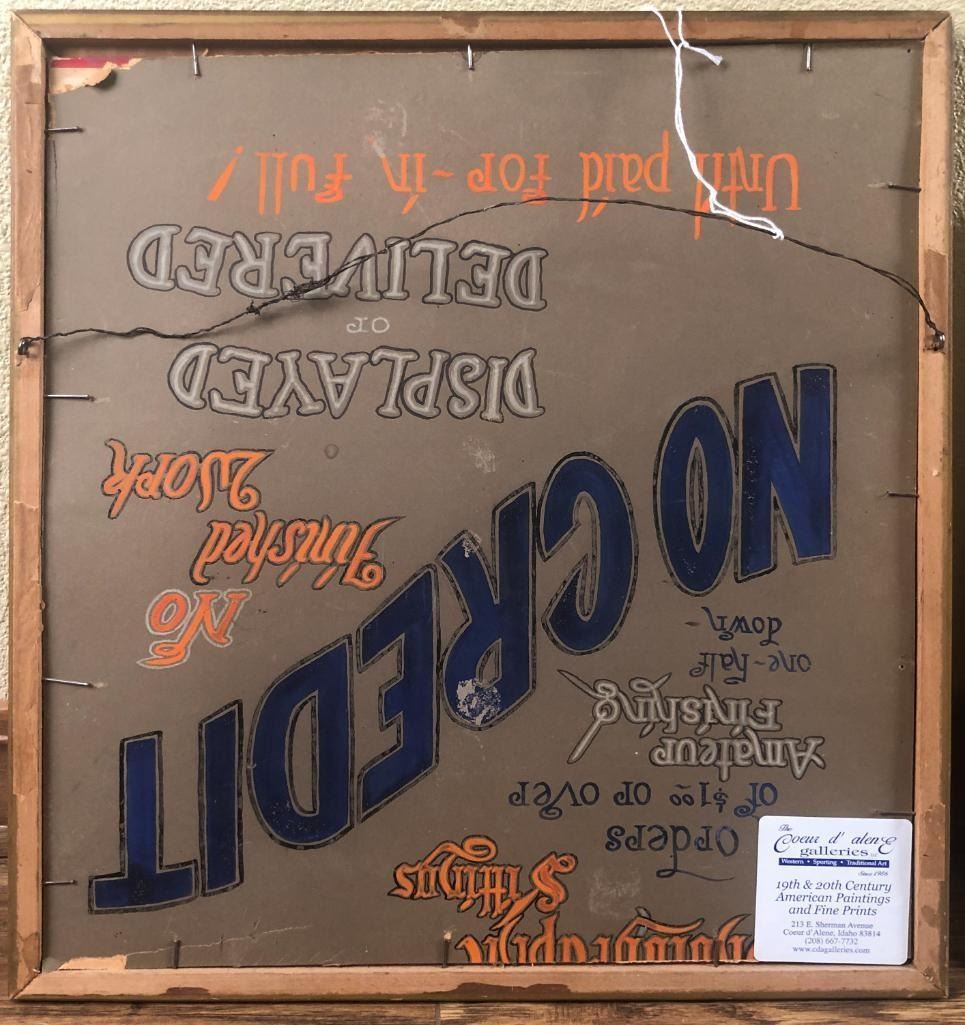 Photographic
Sittings
Orders
of $1.00 or over
Amateur
Finishing
one-half
down-
NO CREDIT
No
Finished
Work
DISPLAYED
or
DELIVERED
Until paid for-in full!
The
Coeur d' alene
galleries
Western • Sporting • Traditional Art
Since 1986
19th & 20th Century
American Paintings
and Fine Prints
213 E. Sherman Avenue
Coeur d'Alene, Idaho 83814
(208) 667-7732
www.cdagalleries.com